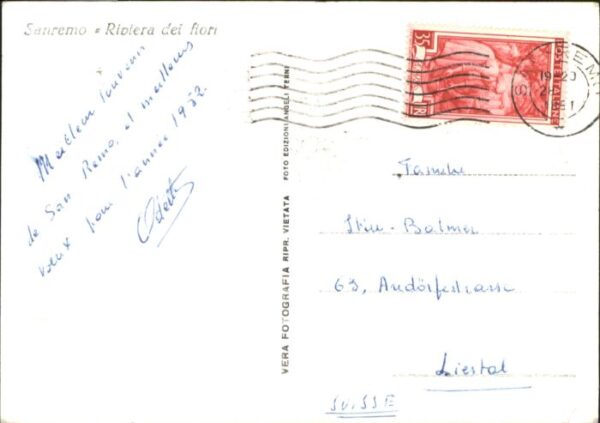 Sanremo - Riviera dei fiori
Meilleur souvenir
de San Remo, et meilleurs
vœux pour l'année 1952.
Odette
VERA FOTOGRAFIA RIPR. VIETATA
FOTO EDIZIONI ANGELI TERNI
35
19-20
Familie
Balmer
63,
Liestal
SUISSE